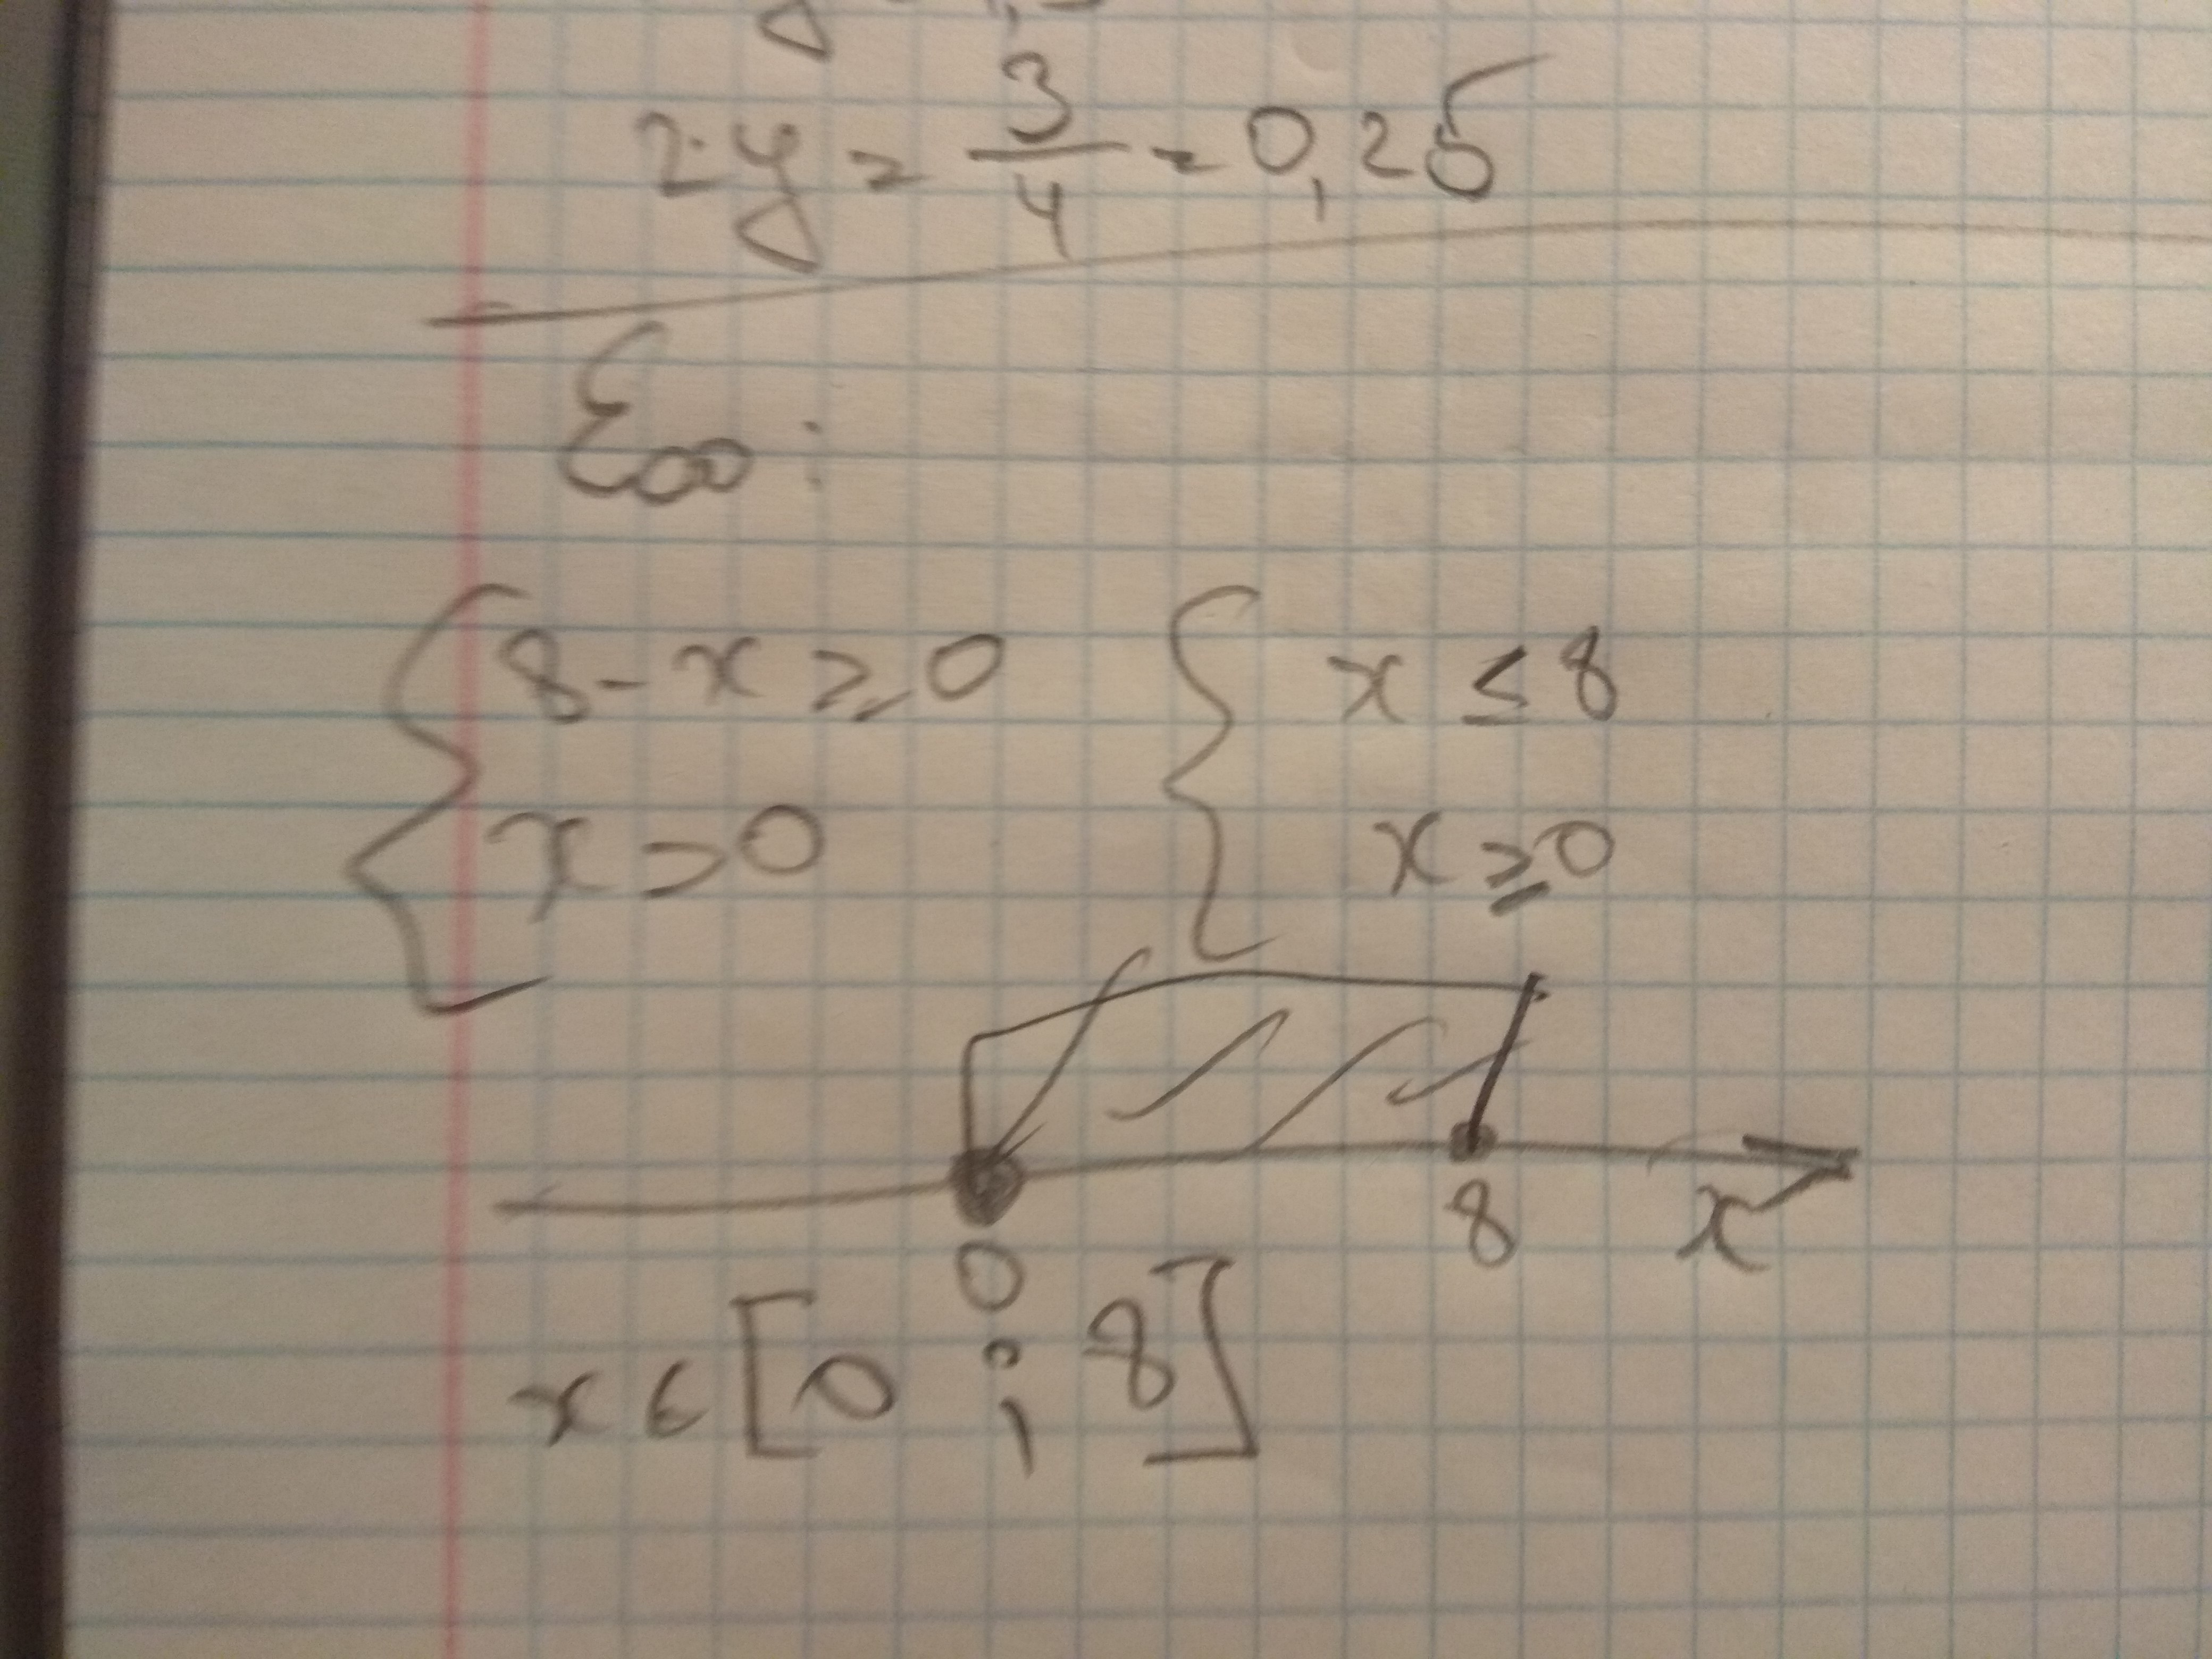 2. y = 3/4 = 0,25
8 - x ≥ 0
x > 0
x ≤ 8
x ≥ 0
0 8 x
x ∈ [0 ; 8]